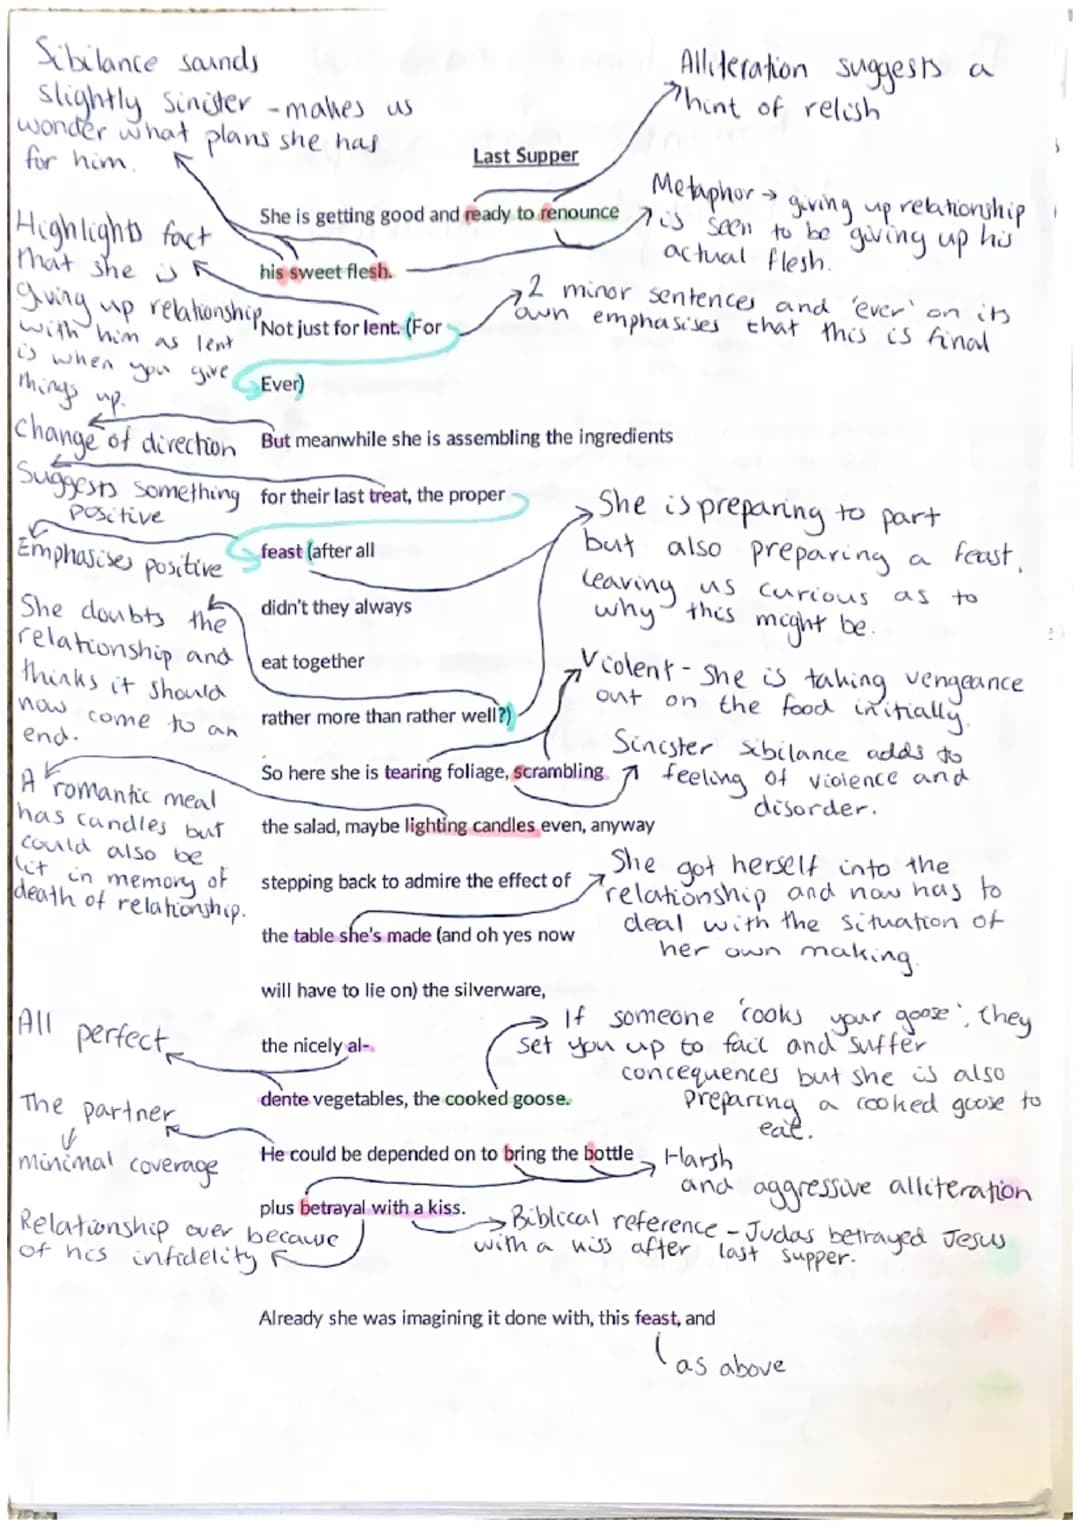 Sibilance sounds
slightly sinister - makes us
wonder what plans she has
for him.
Alliteration suggests a
hint of relish
Last Supper
She is getting good and ready to renounce
his sweet flesh.
Metaphor → giving up relationship
is seen to be giving up his
actual flesh.
Highlights fact
that she is
giving up relationship
with him as lent
is when you give
things up.
Not just for lent. (For
Ever)
2 minor sentences and 'ever' on its
own emphasises that this is final
change of direction
But meanwhile she is assembling the ingredients
Suggests something
positive
for their last treat, the proper
Emphasises positive
feast (after all
She is preparing to part
but also preparing a feast,
leaving us curious as to
why this might be.
She doubts the
relationship and
thinks it should
now come to an
end.
didn't they always
eat together
rather more than rather well?)
Violent - She is taking vengeance
out on the food initially.
So here she is tearing foliage, scrambling
Sinister sibilance adds to
feeling of violence and
disorder.
A romantic meal
has candles but
could also be
lit in memory of
death of relationship.
the salad, maybe lighting candles even, anyway
stepping back to admire the effect of
the table she's made (and oh yes now
She got herself into the
relationship and now has to
deal with the situation of
her own making.
will have to lie on) the silverware,
All perfect
the nicely al-
dente vegetables, the cooked goose.
If someone 'cooks your goose', they
set you up to fail and suffer
concequences but she is also
preparing a cooked goose to
eat.
The partner
minimal coverage
He could be depended on to bring the bottle
Harsh
and aggressive alliteration
plus betrayal with a kiss.
Biblical reference - Judas betrayed Jesus
with a kiss after last supper.
Relationship over because
of his infidelity
Already she was imagining it done with, this feast, and
as above